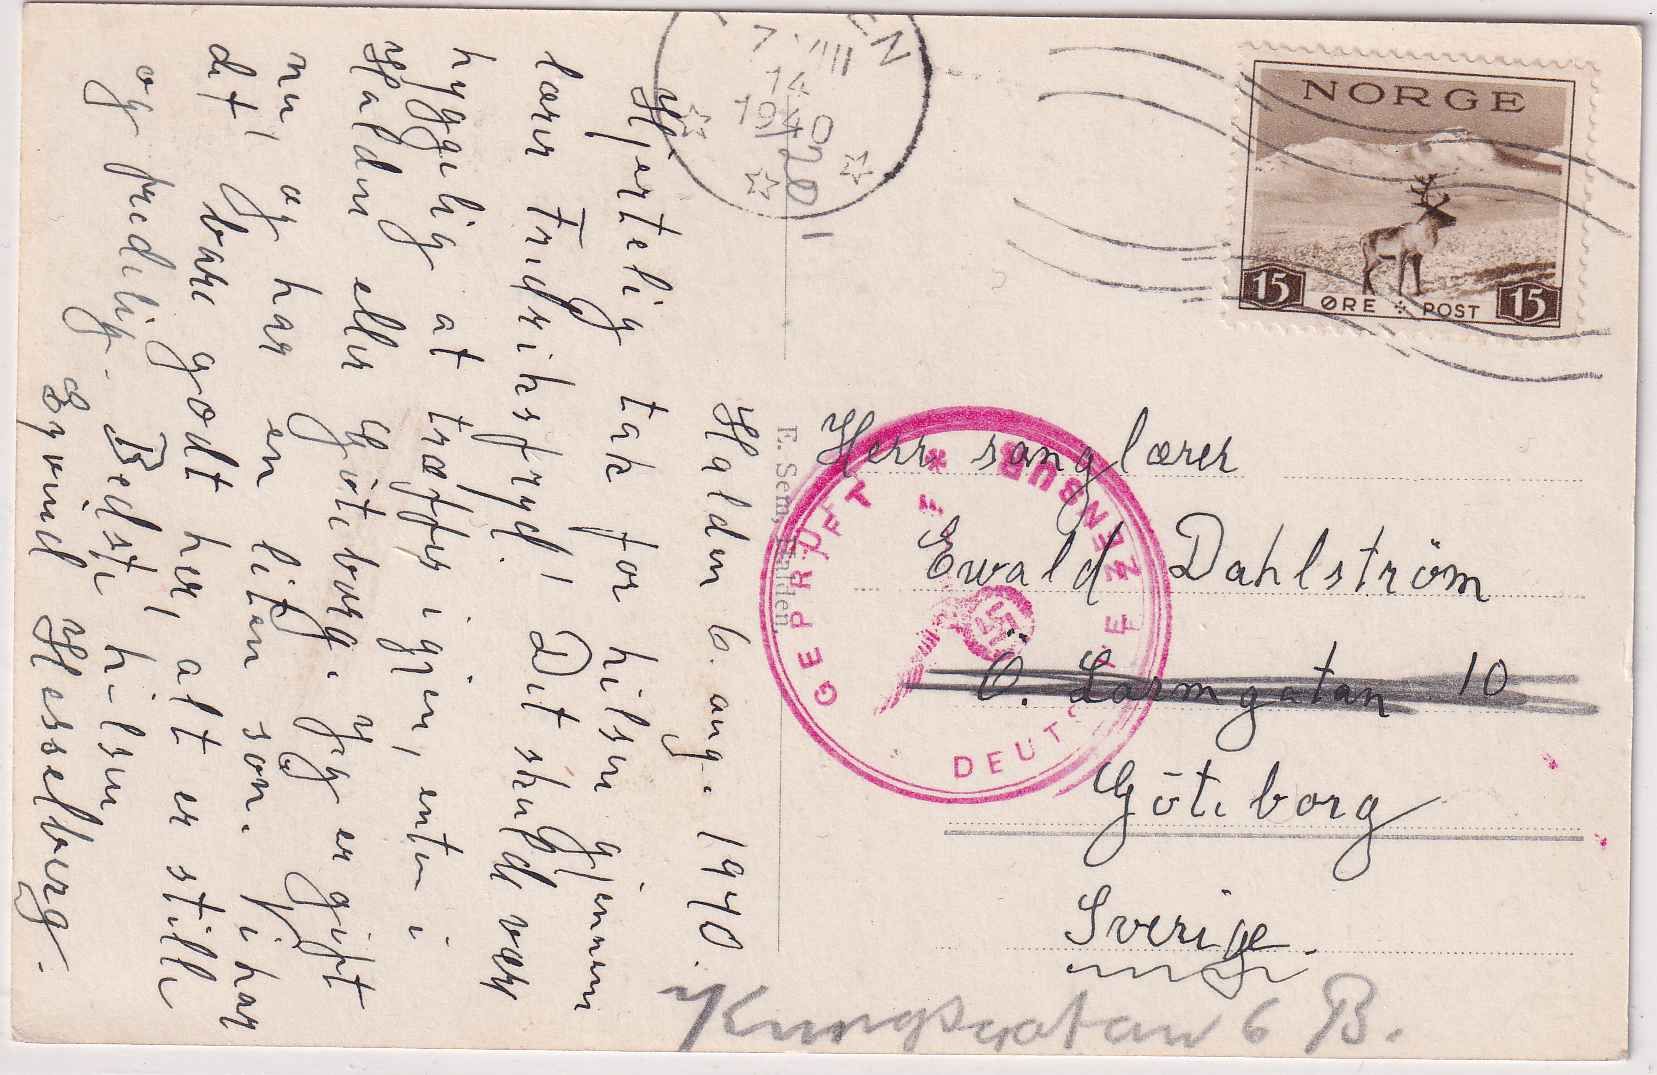 Halden 6. aug. 1940.
Hjertelig tak for hilsen gjennem
lærer Fredriksfryd! Det skulde være
hyggelig at træffes igjen, enten i
Halden eller Göteborg. Jeg er gift
nu og har en liten søn. Vi har
det bare godt her, alt er stille
og fredelig. Bedste hilsen
Eyvind Hesselberg.
E. Sem, Halden.
7 VIII
14
1940
NORGE
15 ØRE POST 15
GEPRÜFT
ZENSUR
DEUTSCHE
Herr sanglærer
Ewald Dahlström
Ö. Larmgatan 10
Göteborg
Sverige.
Kungsgatan 6 B.